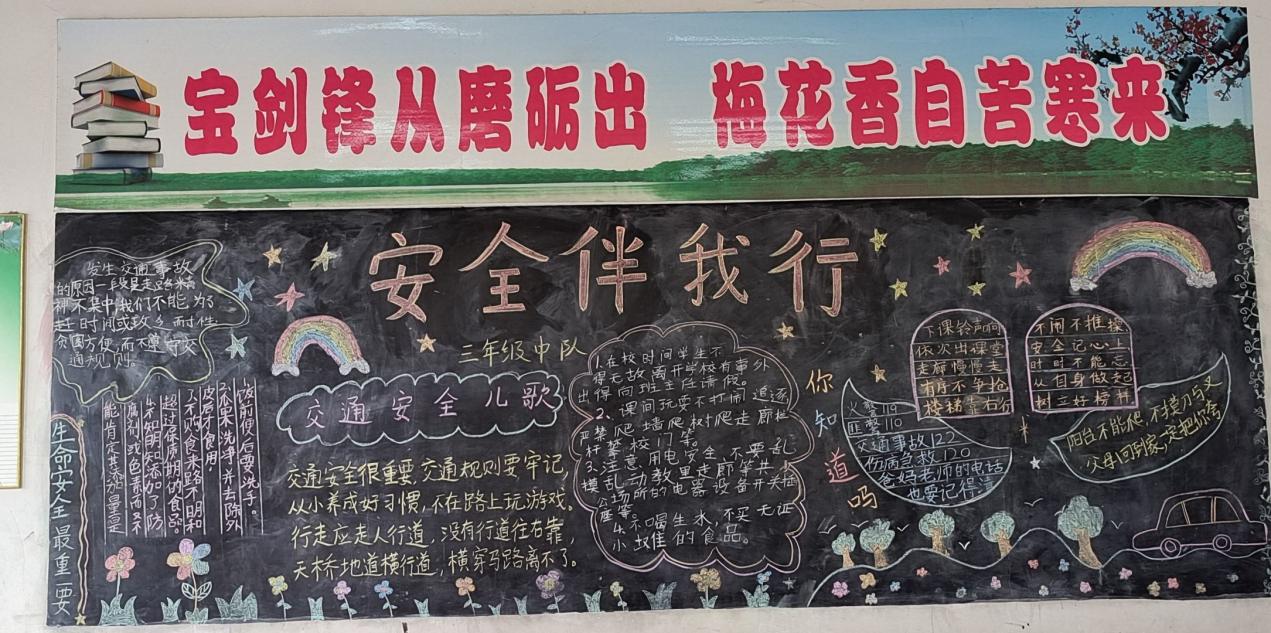 宝剑锋从磨砺出 梅花香自苦寒来
安全伴我行
三年级中队
发生交通事故
的原因一段是走路精
神不集中我们不能为了
赶时间或致乡而性
贪图方便而不遵守交
通规则。
生命安全最重要
1.饭前便后要洗手。
2.瓜果洗净,并去除外
皮后才食用,
3.不购食来路不明和
超过保质期的食品。
4.不知明知添加了防
腐剂或色素而又不
能肯定其添加量是
交通安全儿歌
交通安全很重要,交通规则要牢记,
从小养成好习惯,不在路上玩游戏。
行走应走人行道,没有行道往右靠,
天桥地道横行道,横穿马路离不了。
1.在校时间学生不
得无故离开学校有事外
出得向班主任请假。
2、课间玩耍不打闹追逐
严禁爬墙爬树爬走廊栏
杆攀校门等。
3.注意用电安全,不要乱
摸乱动教室走廊等公共
场所的电器设备开关插
座等。
4、不喝生水,不买无证
小摊的食品。
你知道吗
火警119
匪警110
交通事故122
伤病急救120
爸妈老师的电话
也要记得清
下课铃声响
依次出课堂
走廊慢慢走
有序不争抢
楼梯靠右行
不闹不推操
安全记心上
时时不能忘
从自身做起
树立好榜样
阳台不能爬,不摸刀与叉
父母回到家,一定把你夸